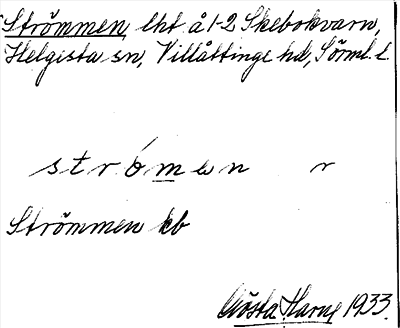 Strömmen, lht å 1-2 Skebokvarn,
Helgesta sn, Villåttinge hd, Sörml. l.
strómen r
Strömmen kb
Gösta Harne 1933.